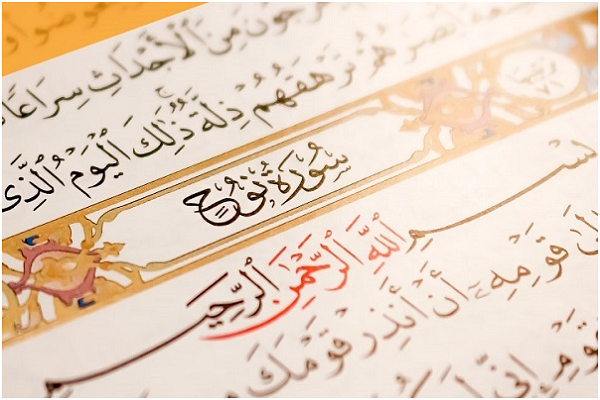 مِنَ ٱلْأَجْدَاثِ سِرَاعًا
أَبْصَٰرُهُمْ تَرْهَقُهُمْ ذِلَّةٌ ذَٰلِكَ ٱلْيَوْمُ ٱلَّذِى
سُورَةُ نُوحٍ
بِسْمِ ٱللَّهِ ٱلرَّحْمَٰنِ ٱلرَّحِيمِ
إِلَىٰ قَوْمِهِۦٓ أَنْ أَنذِرْ قَوْمَكَ
قَوْمِ إِنِّى